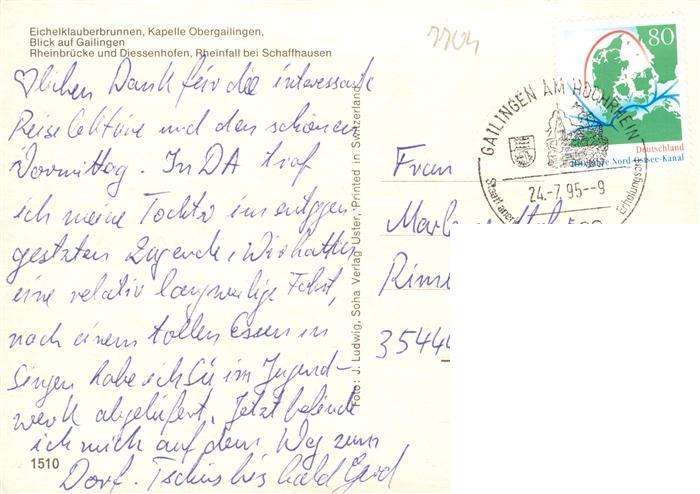 Eichelklauberbrunnen, Kapelle Obergailingen,
Blick auf Gailingen
Rheinbrücke und Diessenhofen, Rheinfall bei Schaffhausen
♡lichen Dank für die interessante
Reiselektüre und den schönen
Vormittag. In DA traf
ich meine Tochter im entgegen-
gesetzten Zugende. Wir hatten
eine relativ langweilige Fahrt,
nach einem tollen Essen in
Singen habe ich sie im Jugend-
werk abgeliefert. Jetzt befinde
ich mich auf dem Weg zum
Dorf. Tschüs bis bald Gerd
1510
Foto: J. Ludwig, Soha Verlag Uster, Printed in Switzerland
7704
80
Deutschland
Nord-Ostsee-Kanal
GAILINGEN AM HOCHRHEIN
24.-7.95--9
Staatl. aner
Erholungsort
Frau
Mar
Rime
35444